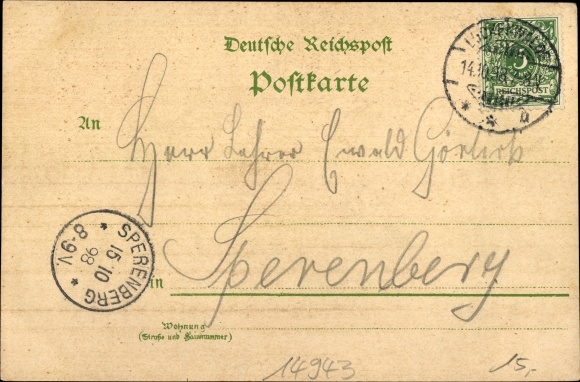 Deutsche Reichspost
Postkarte
LUCKENWALDE
14.10.98
5
REICHSPOST
* * a
An
Herrn Lehrer Ewald Görlich
SPERENBERG
15 10
98
8-9V.
in Sperenberg
Wohnung
(Straße und Hausnummer)
14943
15,-